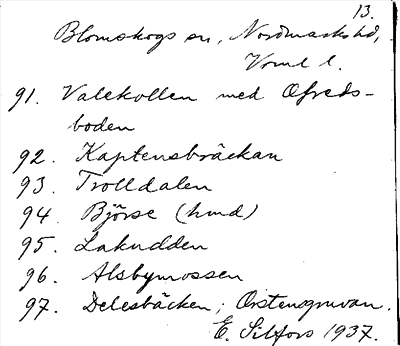 13.
Blomskogs sn, Nordmarks hd,
Värml l.
91. Valekollen med Ofreds-
boden
92. Kaptensbräckan
93. Trolldalen
94. Björse (hmd)
95. Lakudden
96. Alsbymossen
97. Delesbäcken; Östengruvan.
E. Silfors 1937.